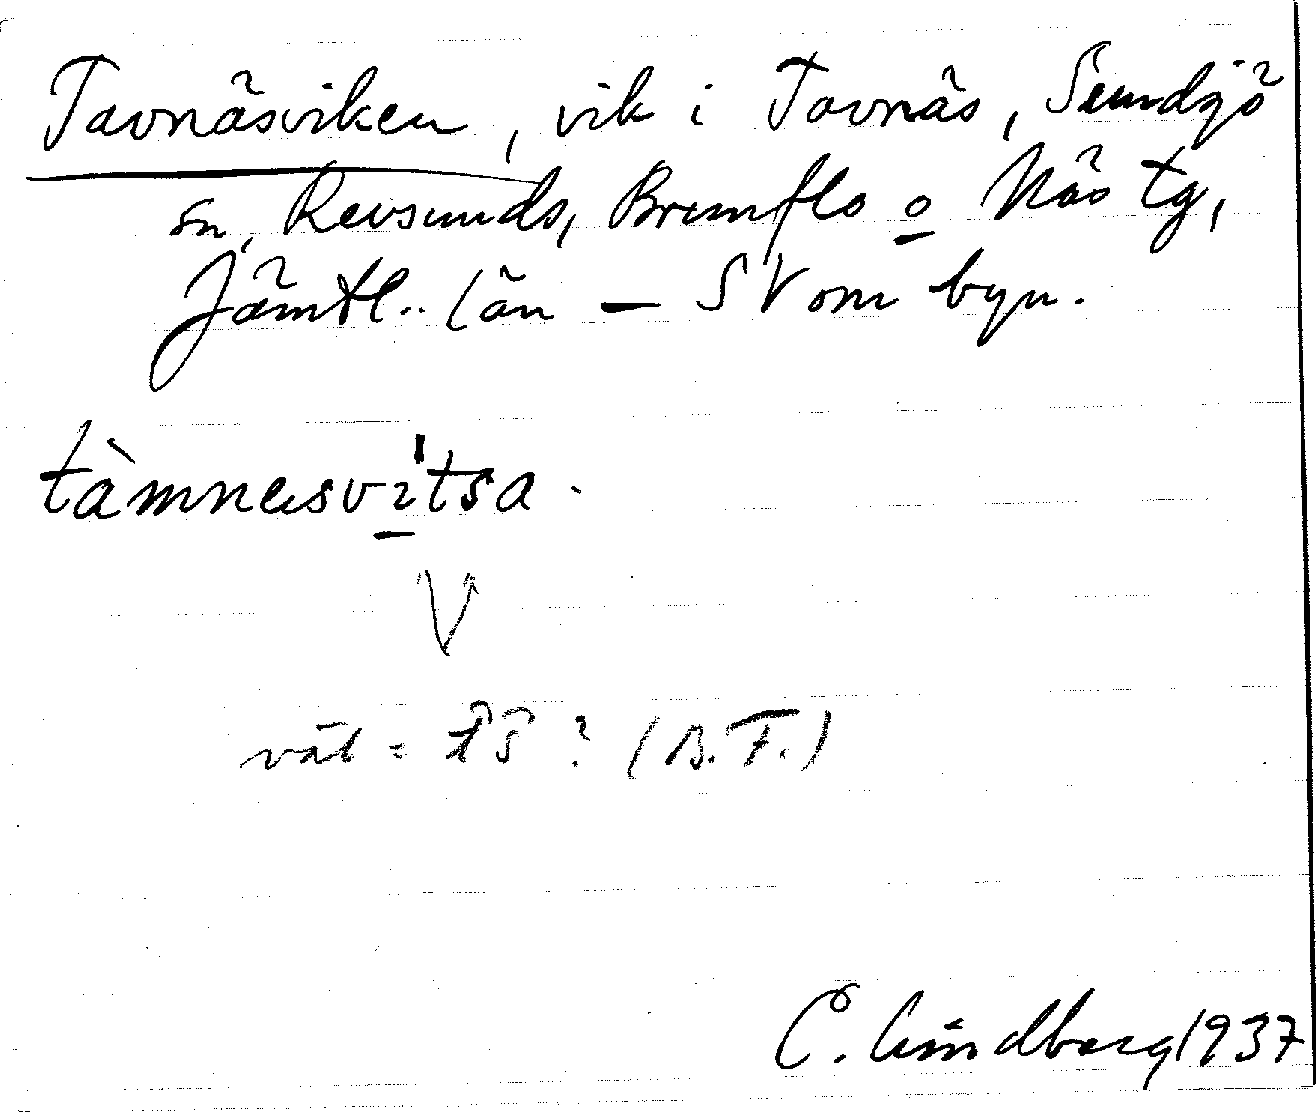 Tavnäsviken, vik i Tavnäs, Sundsjö
sn, Revsunds, Brunflo o Näs tg,
Jämtl. län — SV om byn.
tàmnasvi̱tsa.
väl = ? (B. F.)
C. Lindberg 1937